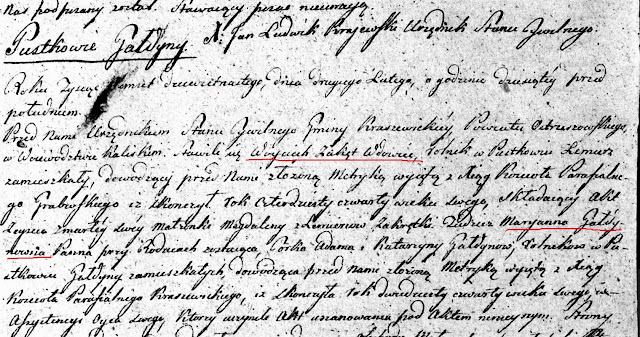 Nas podpisany został. Stawaiący przas nieumieią
Pustkowie Gałdyny. A: Jan Ludwik Kraiewski Urzędnik Stanu Cywilnego.
Roku Tysiąc Ośmset dziewietnastego, dnia drugiego Lutego, o godzinie dziesiątey przed
południem.
Przed Nami Urzędnikiem Stanu Cywilnego Gminy Kraszewickiey, Powiatu Ostrzeszowskiego,
w Woiewodztwie Kaliskim. Stawili się Woyciech Zakęt Wdowiec, Rolnik w Pustkowiu Lemierz
zamieszkały, dowodzący przed Nami złożoną Metryką wyiętą z Xiąg Kościoła Parafialne-
go Grabowskiego iż skończył rok czterdziesty czwarty wieku swego, składaiący Akt
Zeyścia zmarłey swey Małżonki Magdaleny z Zakrętki. Tudzież Maryanna Gałdy-
nowna Panna przy Rodzicach zostaiąca, Corka Adama i Katarzyny Gałdynow, Rolnikow w Pu-
stkowiu Gałdyny zamieszkałych dowodząca przed Nami złożoną Metryką wyiętą z Xiąg
Kościoła Parafialnego Kraszewickiego, iż skończyła rok dwudziesty czwarty wieku swego w
Assystencyi Oyca swego, ktorey Akt uszanowania pod Aktem ninieyszym. Strony